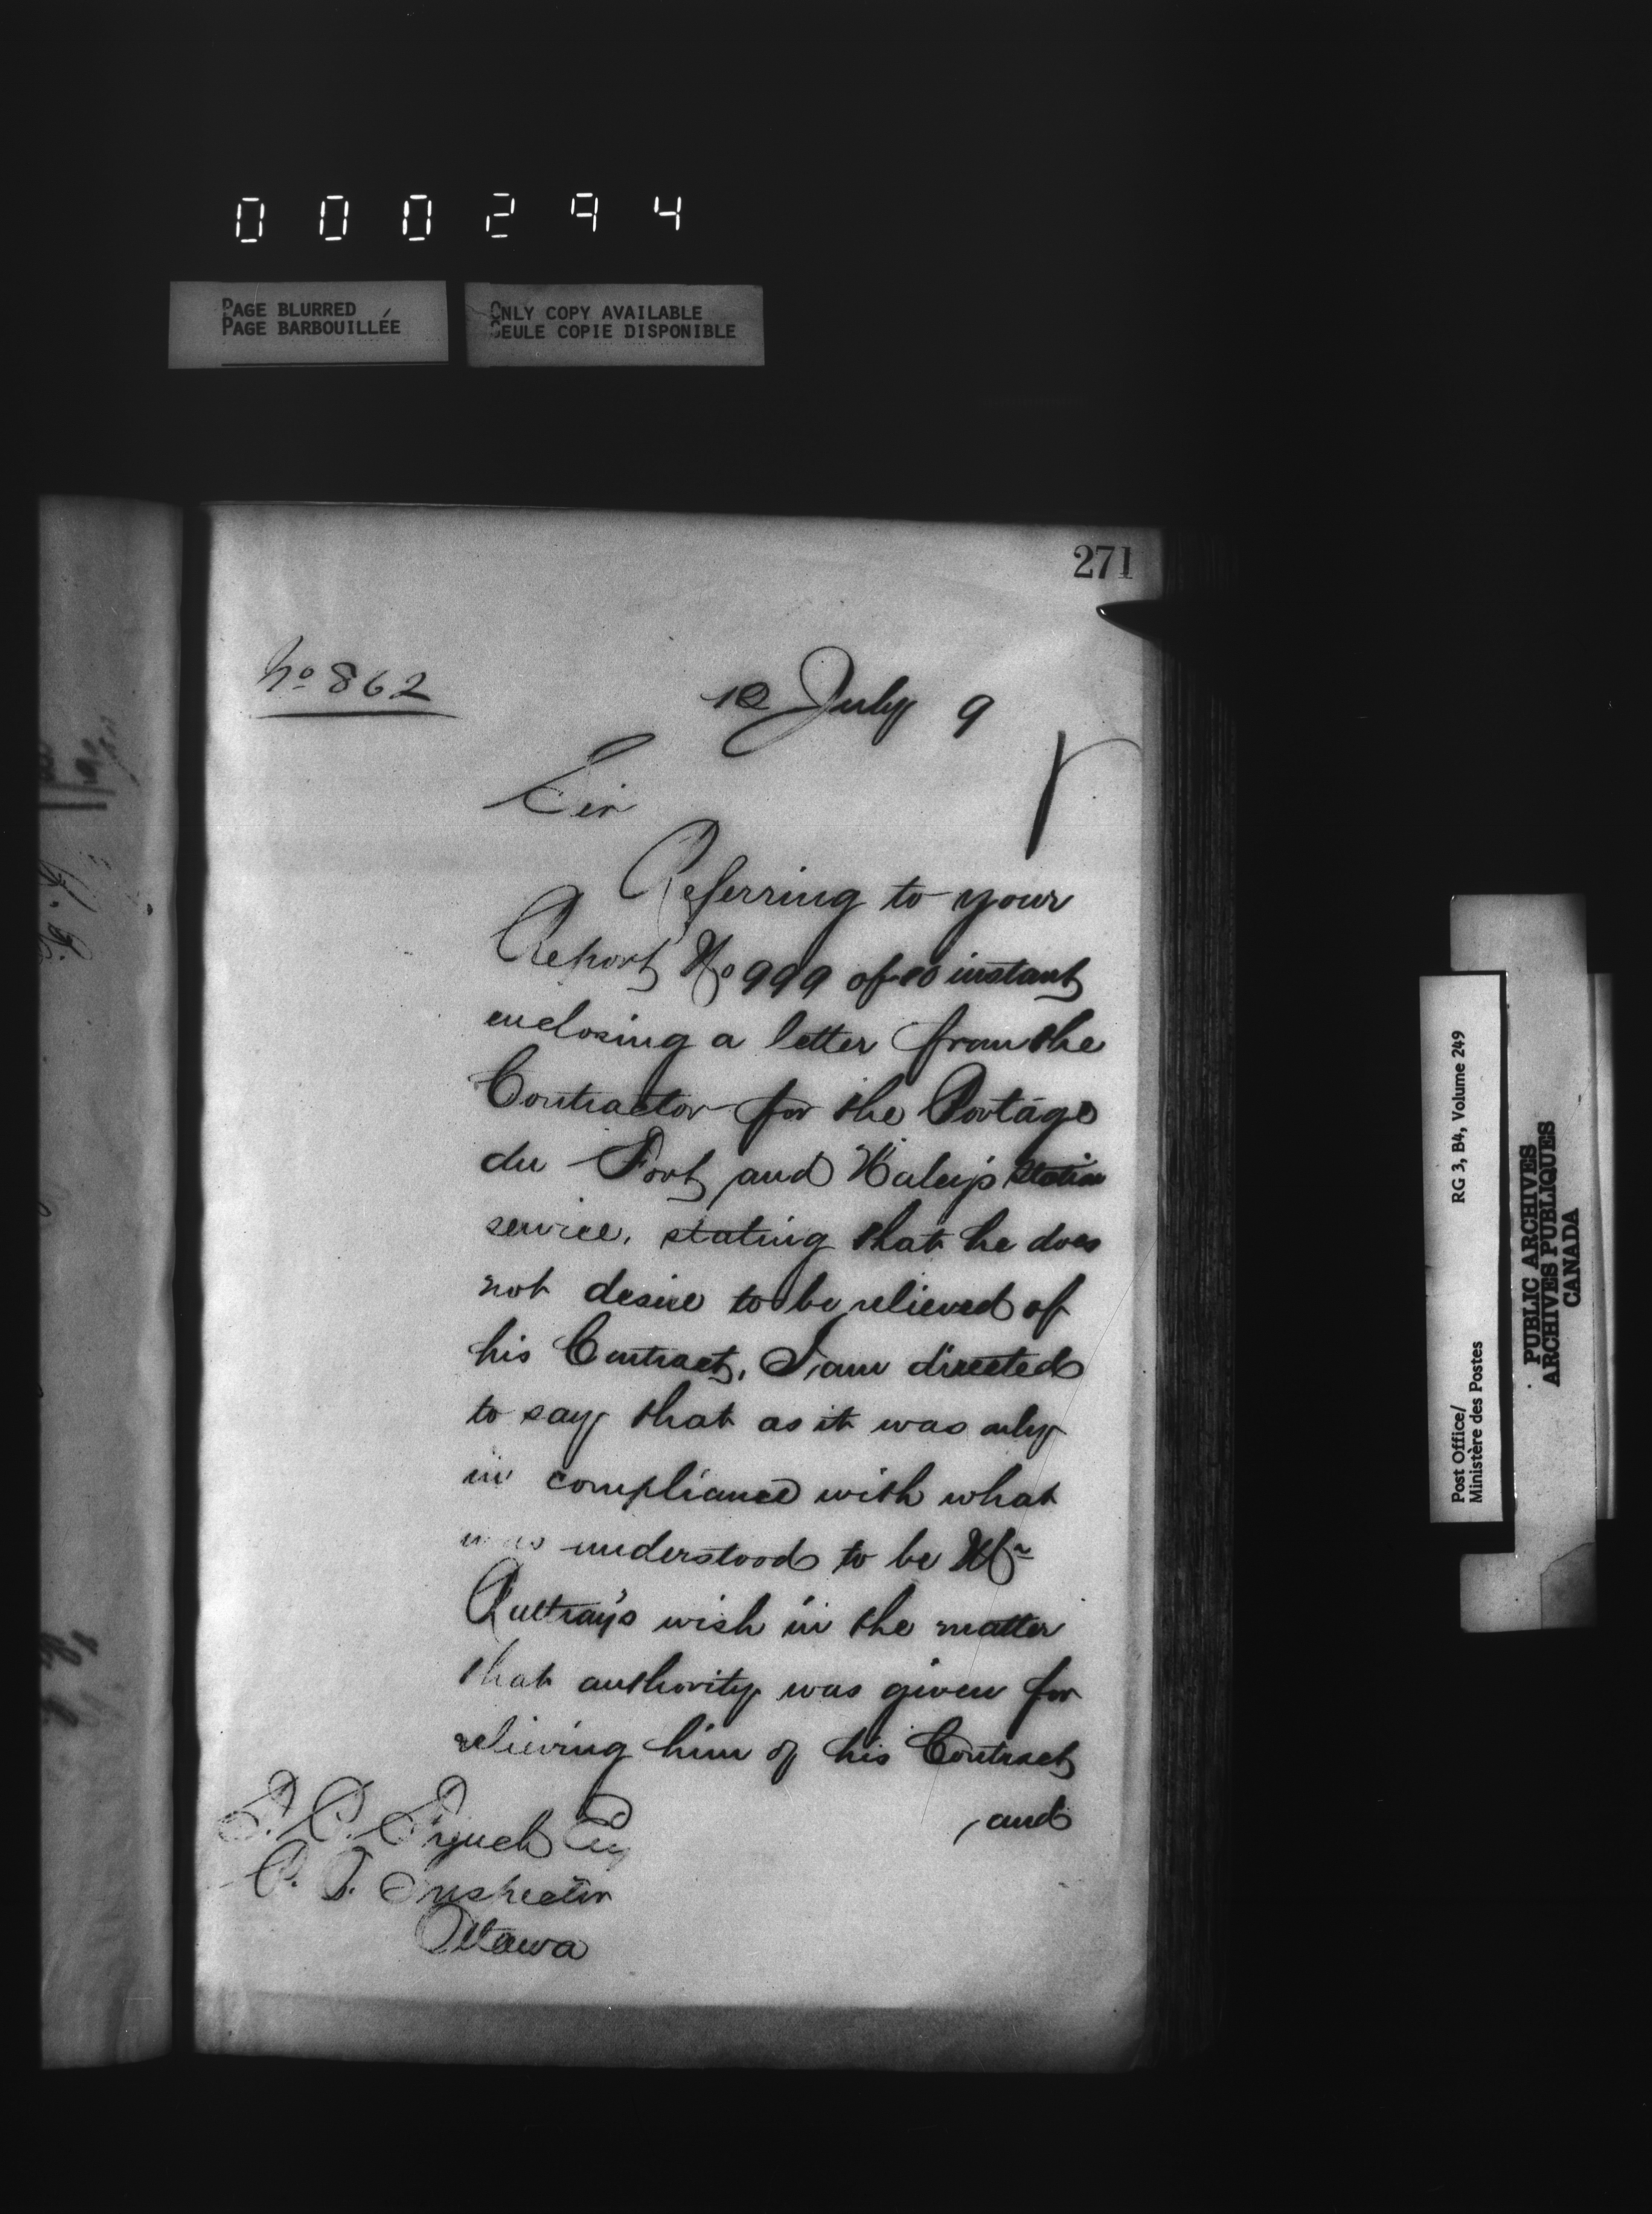 000294
PAGE BLURRED
PAGE BARBOUILLÉE
ONLY COPY AVAILABLE
SEULE COPIE DISPONIBLE
271
No 862
12 July 9
Sir
Referring to your
Report No 999 of 10 instant
enclosing a letter from the
Contractor for the Portage
du Fort and Haley's Station
service, stating that he does
not desire to be relieved of
his Contract, I am directed
to say that as it was only
in compliance with what
was understood to be Mr
wish in the matter
that authority was given for
relieving him of his Contract
and
T. P. French Esq
P. O. Inspector
Ottawa
Post Office/
Ministère des Postes
RG 3, B4, Volume 249
PUBLIC ARCHIVES
ARCHIVES PUBLIQUES
CANADA